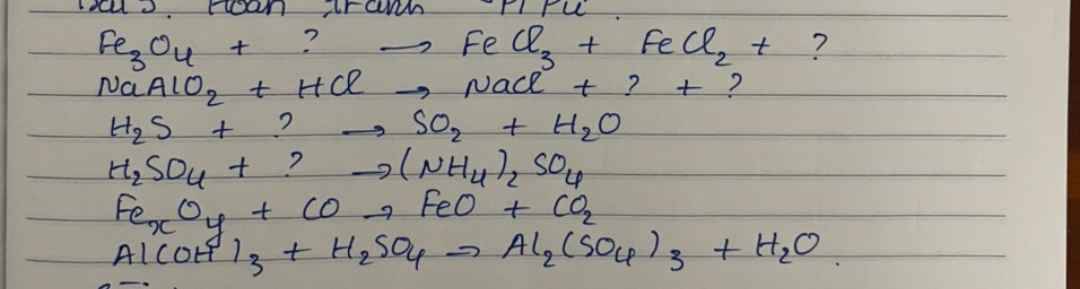 Bài 3. Hoàn thành PTPƯ.
Fe₃O₄ + ? → FeCl₃ + FeCl₂ + ?
NaAlO₂ + HCl → Nacl + ? + ?
H₂S + ? → SO₂ + H₂O
H₂SO₄ + ? → (NH₄)₂ SO₄
FeₓOᵧ + CO → FeO + CO₂
Al(OH)₃ + H₂SO₄ → Al₂(SO₄)₃ + H₂O.